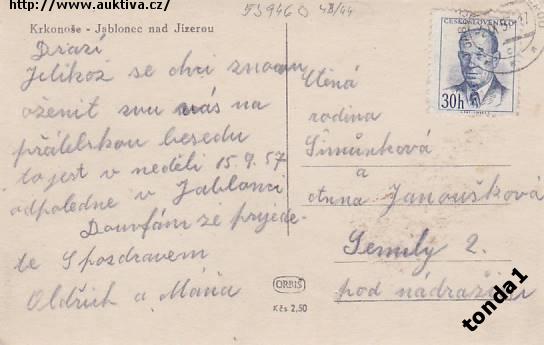 http://www.auktiva.cz/
53946 0 48/44
Krkonoše - Jablonec nad Jizerou
Drazí
Jelikož se chci znovu
oženit zvu vás na
přátelskou besedu
to jest v neděli 15.9.57
odpoledne v Jablonci
Doufám že přijede-
te S pozdravem
Oldřich a Máňa
ORBIS
Kčs 2,50
ČESKOSLOVENSKO
30h
Ctěná
rodina
Šimůnková
a
Janoušková
Semily 2.
pod nádražím
tonda1